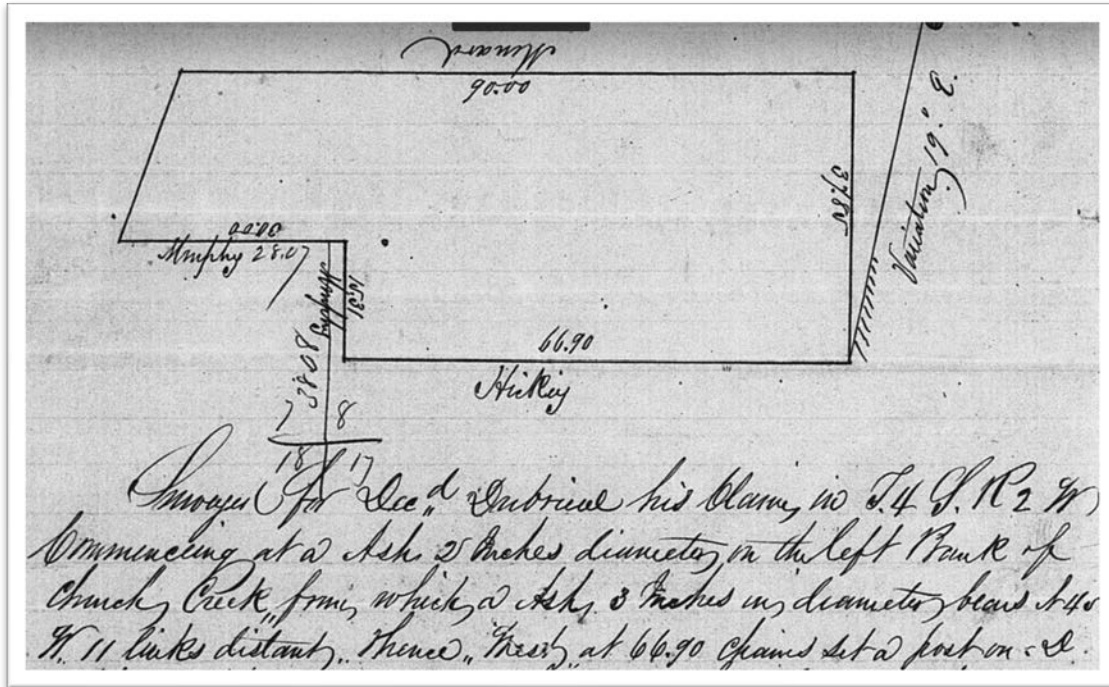 Menard
90.00
37.50
Variation 19.° E.
00.00
Murphy 28.07
Murphy
38.08
66.90
Hickey
7 8
18 17
Surveyed for Decd Dubrieul his Claim in T. 4 S. R 2 W
Commencing at a Ash 2 Inches diameter on the left Bank of
Church Creek from which a Ash 3 Inches in diameter bears
W. 11 links distant, Thence West at 66.90 chains set a post on